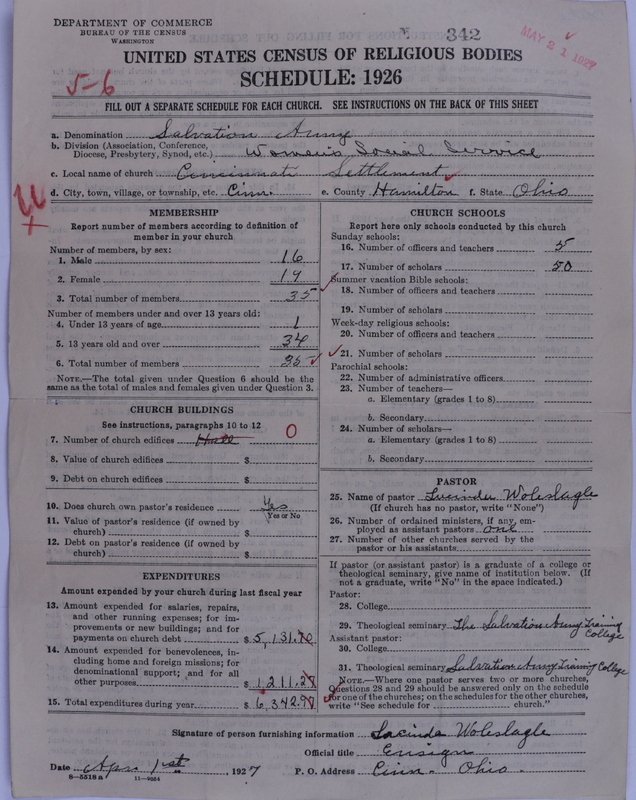 DEPARTMENT OF COMMERCE
BUREAU OF THE CENSUS
WASHINGTON
342
MAY 21 1927
UNITED STATES CENSUS OF RELIGIOUS BODIES
SCHEDULE: 1926
5-6
FILL OUT A SEPARATE SCHEDULE FOR EACH CHURCH. SEE INSTRUCTIONS ON THE BACK OF THIS SHEET
a. Denomination Salvation Army
b. Division (Association, Conference,
Diocese, Presbytery, Synod, etc.) Women's Social Service
c. Local name of church Cincinnati Settlement
d. City, town, village, or township, etc. Cinn. e. County Hamilton f. State Ohio
MEMBERSHIP
Report number of members according to definition of
member in your church
Number of members, by sex:
1. Male 16
2. Female 19
3. Total number of members 35
Number of members under and over 13 years old:
4. Under 13 years of age 1
5. 13 years old and over 34
6. Total number of members 35
NOTE.—The total given under Question 6 should be the
same as the total of males and females given under Question 3.
CHURCH BUILDINGS
See instructions, paragraphs 10 to 12
7. Number of church edifices Hall 0
8. Value of church edifices $
9. Debt on church edifices $
10. Does church own pastor's residence Yes
Yes or No
11. Value of pastor's residence (if owned by
church) $
12. Debt on pastor's residence (if owned by
church) $
EXPENDITURES
Amount expended by your church during last fiscal year
13. Amount expended for salaries, repairs,
and other running expenses; for im-
provements or new buildings; and for
payments on church debt $5,131.70
14. Amount expended for benevolences, in-
cluding home and foreign missions; for
denominational support; and for all
other purposes $1,211.28
15. Total expenditures during year $6,342.98
CHURCH SCHOOLS
Report here only schools conducted by this church
Sunday schools:
16. Number of officers and teachers 5
17. Number of scholars 50
Summer vacation Bible schools:
18. Number of officers and teachers
19. Number of scholars
Week-day religious schools:
20. Number of officers and teachers
21. Number of scholars
Parochial schools:
22. Number of administrative officers
23. Number of teachers—
a. Elementary (grades 1 to 8)
b. Secondary
24. Number of scholars—
a. Elementary (grades 1 to 8)
b. Secondary
PASTOR
25. Name of pastor Lucinda Woleslagle
(If church has no pastor, write "None")
26. Number of ordained ministers, if any, em-
ployed as assistant pastors one
27. Number of other churches served by the
pastor or his assistants
If pastor (or assistant pastor) is a graduate of a college or
theological seminary, give name of institution below. (If
not a graduate, write "No" in the space indicated.)
Pastor:
28. College
29. Theological seminary The Salvation Army Training College
Assistant pastor:
30. College
31. Theological seminary Salvation Army Training College
NOTE.—Where one pastor serves two or more churches,
Questions 28 and 29 should be answered only on the schedule
for one of the churches; on the schedules for the other churches,
write "See schedule for church."
Signature of person furnishing information Lucinda Woleslagle
Official title Ensign
Date Apr. 1st, 1927 P. O. Address Cinn. Ohio.
8—5518a 11—9054